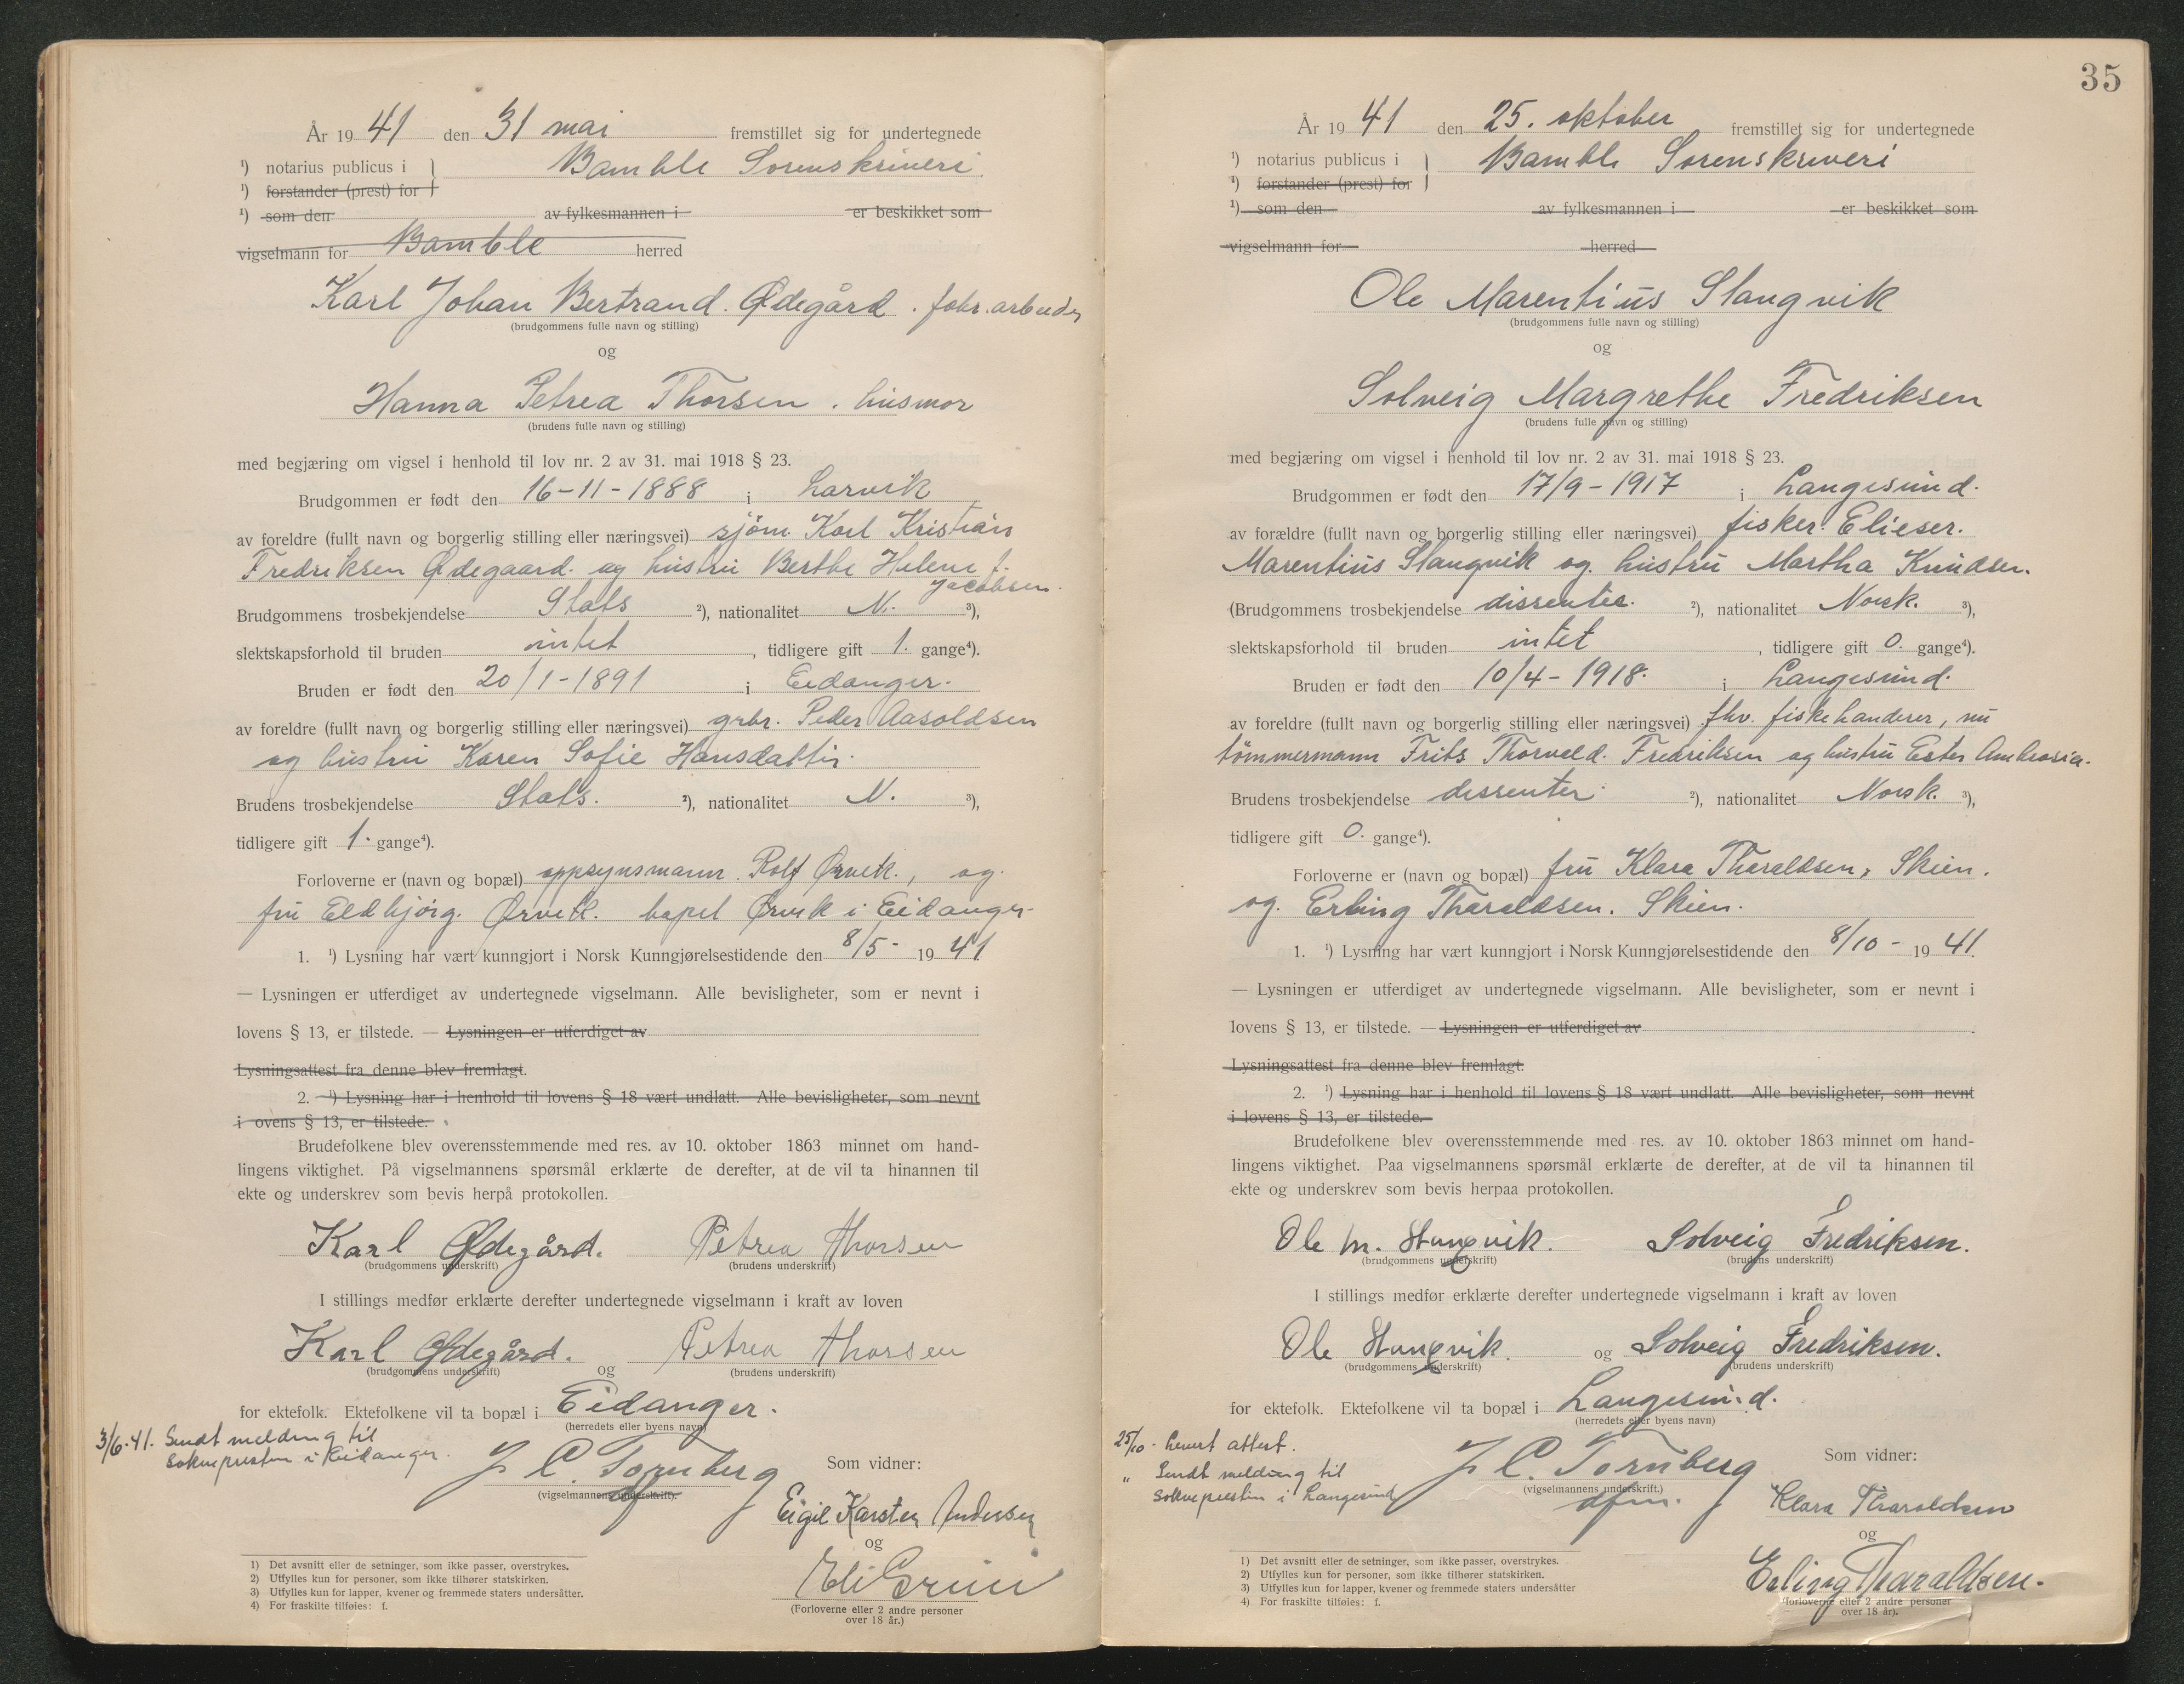 År 19 41 den 31 mai fremstillet sig for undertegnede
¹) notarius publicus i } Bamble Sorenskriveri.
¹) forstander (prest) for
¹) som den av fylkesmannen i er beskikket som
vigselmann for Bamble herred
Karl Johan Bertrand Ødegård . fabr. arbeider
(brudgommens fulle navn og stilling)
og
Hanna Petrea Thorsen . husmor
(brudens fulle navn og stilling)
med begjæring om vigsel i henhold til lov nr. 2 av 31. mai 1918 § 23.
Brudgommen er født den 16-11-1888 i Larvik
av foreldre (fullt navn og borgerlig stilling eller næringsvei) sjøm. Karl Kristian
Fredriksen Ødegaard. og hustru Berthe Helene f.
Jacobsen.
Brudgommens trosbekjendelse Stats ²), nationalitet N. ³),
slektskapsforhold til bruden intet , tidligere gift 1. gange⁴).
Bruden er født den 20/1-1891 i Eidanger.
av foreldre (fullt navn og borgerlig stilling eller næringsvei) grbr. Peder Aasoldsen
og hustru Karen Sofie Hansdatter.
Brudens trosbekjendelse Stats. ²), nationalitet N. ³),
tidligere gift 1. gange⁴).
Forloverne er (navn og bopæl) oppsynsmann Rolf Ørvik., og
fru Eldbjørg Ørvik. bopel Ørvik i Eidanger
1. ¹) Lysning har vært kunngjort i Norsk Kunngjørelsestidende den 8/5- 19 41
— Lysningen er utferdiget av undertegnede vigselmann. Alle bevisligheter, som er nevnt i
lovens § 13, er tilstede. — Lysningen er utferdiget av
Lysningsattest fra denne blev fremlagt.
2. ¹) Lysning har i henhold til lovens § 18 vært undlatt. Alle bevisligheter, som nevnt
i ovens § 13, er tilstede.
Brudefolkene blev overensstemmende med res. av 10. oktober 1863 minnet om hand-
lingens viktighet. På vigselmannens spørsmål erklærte de derefter, at de vil ta hinannen til
ekte og underskrev som bevis herpå protokollen.
Karl Ødegård. Petrea Thorsen
(brudgommens underskrift) (brudens underskrift)
I stillings medfør erklærte derefter undertegnede vigselmann i kraft av loven
Karl Ødegård. Petrea Thorsen
(brudgommens underskrift) og (brudens underskrift)
for ektefolk. Ektefolkene vil ta bopæl i Eidanger.
(herredets eller byens navn)
3/6-41. Sendt melding til
Soknepresten i Eidanger.
J C. Tornberg
(vigselmannens underskrift).
Som vidner:
Eigil Karsten Andersen
og
(Forloverne eller 2 andre personer
over 18 år.)
1) Det avsnitt eller de setninger, som ikke passer, overstrykes.
2) Utfylles kun for personer, som ikke tilhører statskirken.
3) Utfylles kun for lapper, kvener og fremmede staters undersåtter.
4) For fraskilte tilføies: f.
35
År 19 41 den 25. oktober fremstillet sig for undertegnede
¹) notarius publicus i } Bamble Sorenskriveri
¹) forstander (prest) for
¹) som den av fylkesmannen i er beskikket som
vigselmann for herred
Ole Marentius Stangvik
(brudgommens fulle navn og stilling)
og
Solveig Margrethe Fredriksen
(brudens fulle navn og stilling)
med begjæring om vigsel i henhold til lov nr. 2 av 31. mai 1918 § 23.
Brudgommen er født den 17/9-1917 i Langesund.
av forældre (fullt navn og borgerlig stilling eller næringsvei) fisker. Elieser.
Marentius Stangvik og hustru Martha Knudsen.
(Brudgommens trosbekjendelse dissenter. ²), nationalitet Norsk. ³),
slektskapsforhold til bruden intet , tidligere gift 0. gange⁴).
Bruden er født den 10/4-1918. i Langesund.
av foreldre (fullt navn og borgerlig stilling eller næringsvei) fhv. fiskehanderer, nu
tömmermann Frits Thorvald. Fredriksen og hustru Ester Ambrosia.
Brudens trosbekjendelse dissenter ²), nationalitet Norsk. ³),
tidligere gift 0. gange⁴).
Forloverne er (navn og bopæl) fru Klara Tharaldsen, Skien.
og Erling Tharaldsen. Skien.
1. ¹) Lysning har vært kunngjort i Norsk Kunngjørelsestidende den 8/10- 19 41.
— Lysningen er utferdiget av undertegnede vigselmann. Alle bevisligheter, som er nevnt i
lovens § 13, er tilstede. — Lysningen er utferdiget av .
Lysningsattest fra denne blev fremlagt.
2. ¹) Lysning har i henhold til lovens § 18 vært undlatt. Alle bevisligheter, som nevnt
i lovens § 13, er tilstede.
Brudefolkene blev overensstemmende med res. av 10. oktober 1863 minnet om hand-
lingens viktighet. Paa vigselmannens spørsmål erklærte de derefter, at de vil ta hinannen til
ekte og underskrev som bevis herpaa protokollen.
Ole M. Stangvik. Solveig Fredriksen.
(brudgommens underskrift) (brudens underskrift)
I stillings medfør erklærte derefter undertegnede vigselmann i kraft av loven
Ole Stangvik. og Solveig Fredriksen.
(brudgommens underskrift) (brudens underskrift)
for ektefolk. Ektefolkene vil ta bopæl i Langesund.
(herredets eller byens navn)
25/10 - Levert attest.
" Sendt melding til
Soknepresten i Langesund
J C. Tornberg
(vigselmannens underskrift.)
dfm.
Som vidner:
Klara Tharaldsen
og
Erling Tharaldsen.
(Forloverne eller 2 andre personer
over 18 år).
1) Det avsnitt eller de setninger, som ikke passer, overstrykes.
2) Utfylles kun for personer, som ikke tilhører statskirken.
3) Utfylles kun for lapper, kvener og fremmede staters undersåtter
4) For fraskilte tilføies: f.